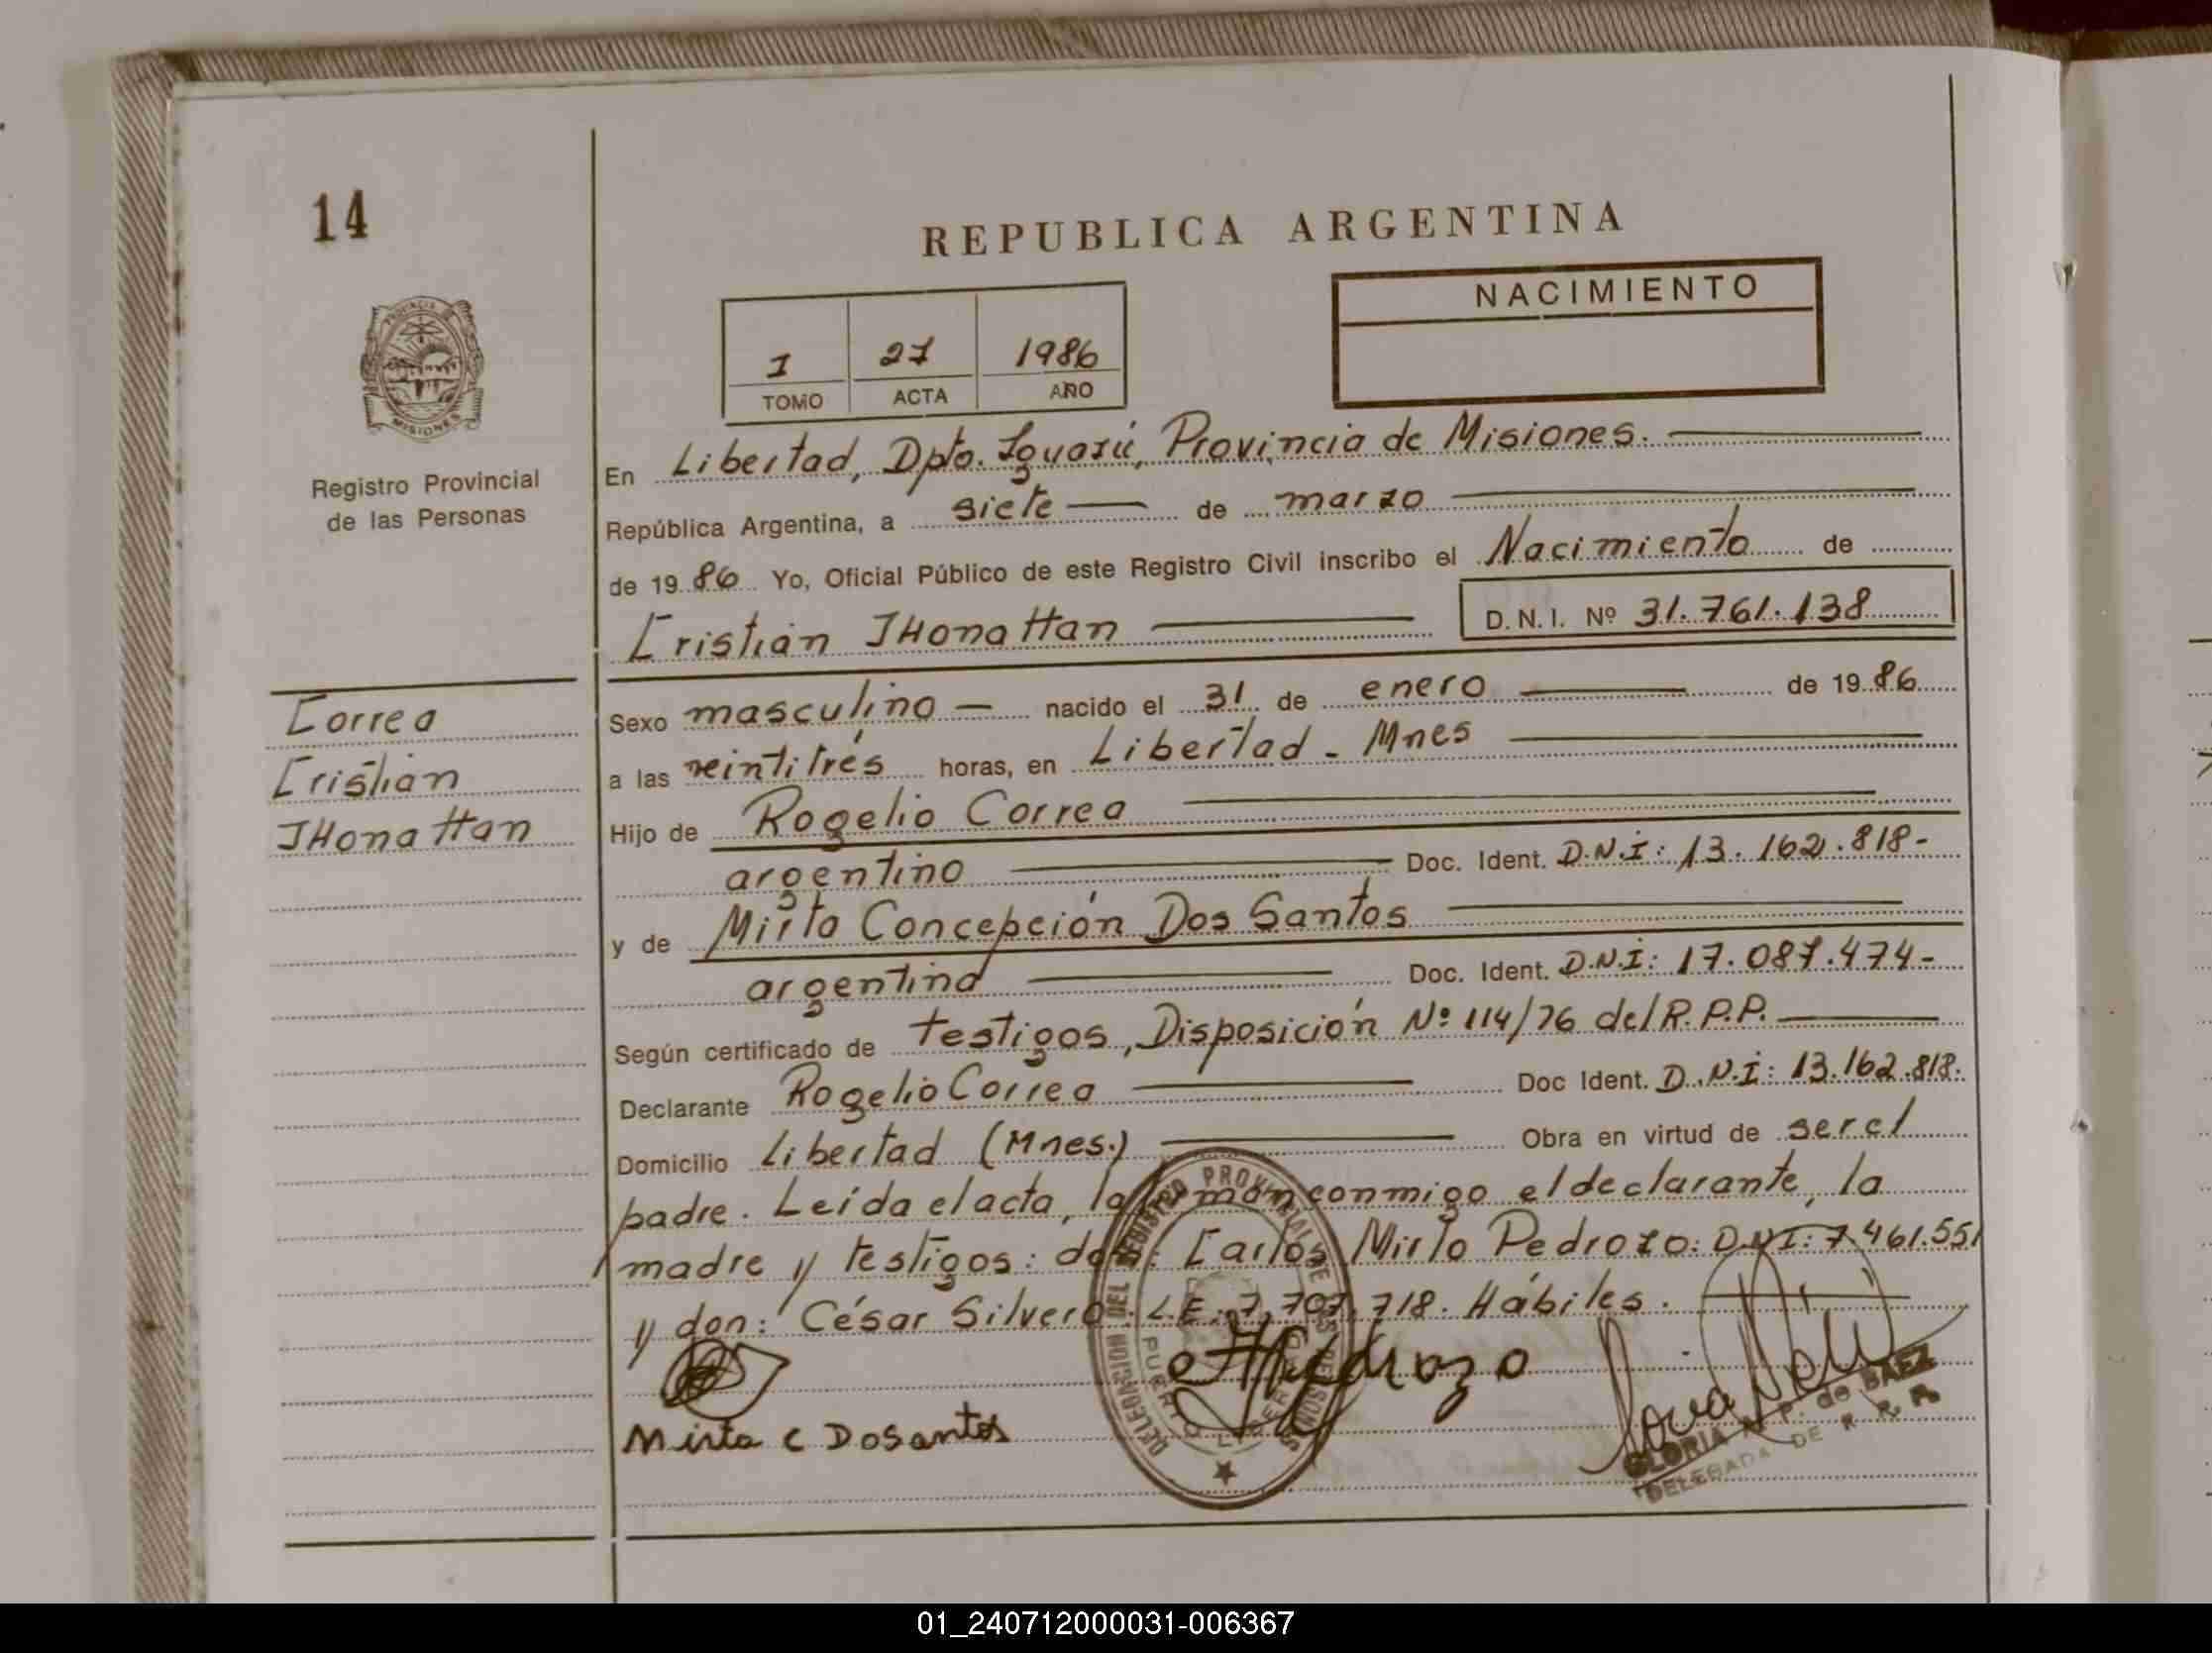 14
REPUBLICA ARGENTINA
NACIMIENTO
I 27 1986
TOMO ACTA AÑO
PROVINCIA
MISIONES
Registro Provincial
de las Personas
En Libertad, Dpto. Iguazú, Provincia de Misiones.
República Argentina, a siete de marzo
de 1986 Yo, Oficial Público de este Registro Civil inscribo el Nacimiento de
Cristian JHonattan D.N.I. Nº 31.761.138
Correa
Cristian
JHonattan
Sexo masculino nacido el 31 de enero de 1986
a las veintitrés horas, en Libertad - Mnes
Hijo de Rogelio Correa
argentino Doc. Ident. D.N.I: 13.162.818-
y de Mirta Concepción Dos Santos
argentina Doc. Ident. D.N.I: 17.087.474-
Según certificado de testigos, Disposición Nº 114/76 del R.P.P.
Declarante Rogelio Correa Doc Ident. D.N.I: 13.162.818.
Domicilio Libertad (Mnes.) Obra en virtud de ser el
padre. Leída el acta, la firman conmigo el declarante, la
madre y testigos: don: Carlos Mirto Pedrozo: D.N.I: 7.461.551
y don: César Silvero: L.E. 7.707.718. Hábiles.
Mirta C Dosantos
Pedrozo
DELEGACION DEL REGISTRO PROVINCIAL DE LAS PERSONAS
PUERTO LIBERTAD
GLORIA N. P. de BAEZ
DELEGADA DE R. R. P.
01_240712000031-006367